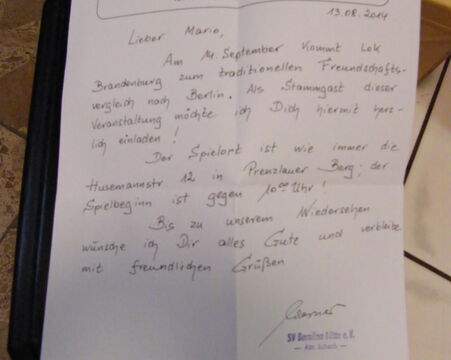 13.08.2014
Lieber Mario,
Am 14. September kommt Lok
Brandenburg zum traditionellen Freundschafts-
vergleich nach Berlin. Als Stammgast dieser
Veranstaltung möchte ich Dich hiermit herz-
lich einladen!
Der Spielort ist wie immer die
Husemannstr 12 in Prenzlauer Berg; der
Spielbeginn ist gegen 10⁰⁰ Uhr!
Bis zu unserem Wiedersehen
wünsche ich Dir alles Gute und verbleibe
mit freundlichen Grüßen
Werner
SV Berolina Mitte e.V.
- Abt. Schach -